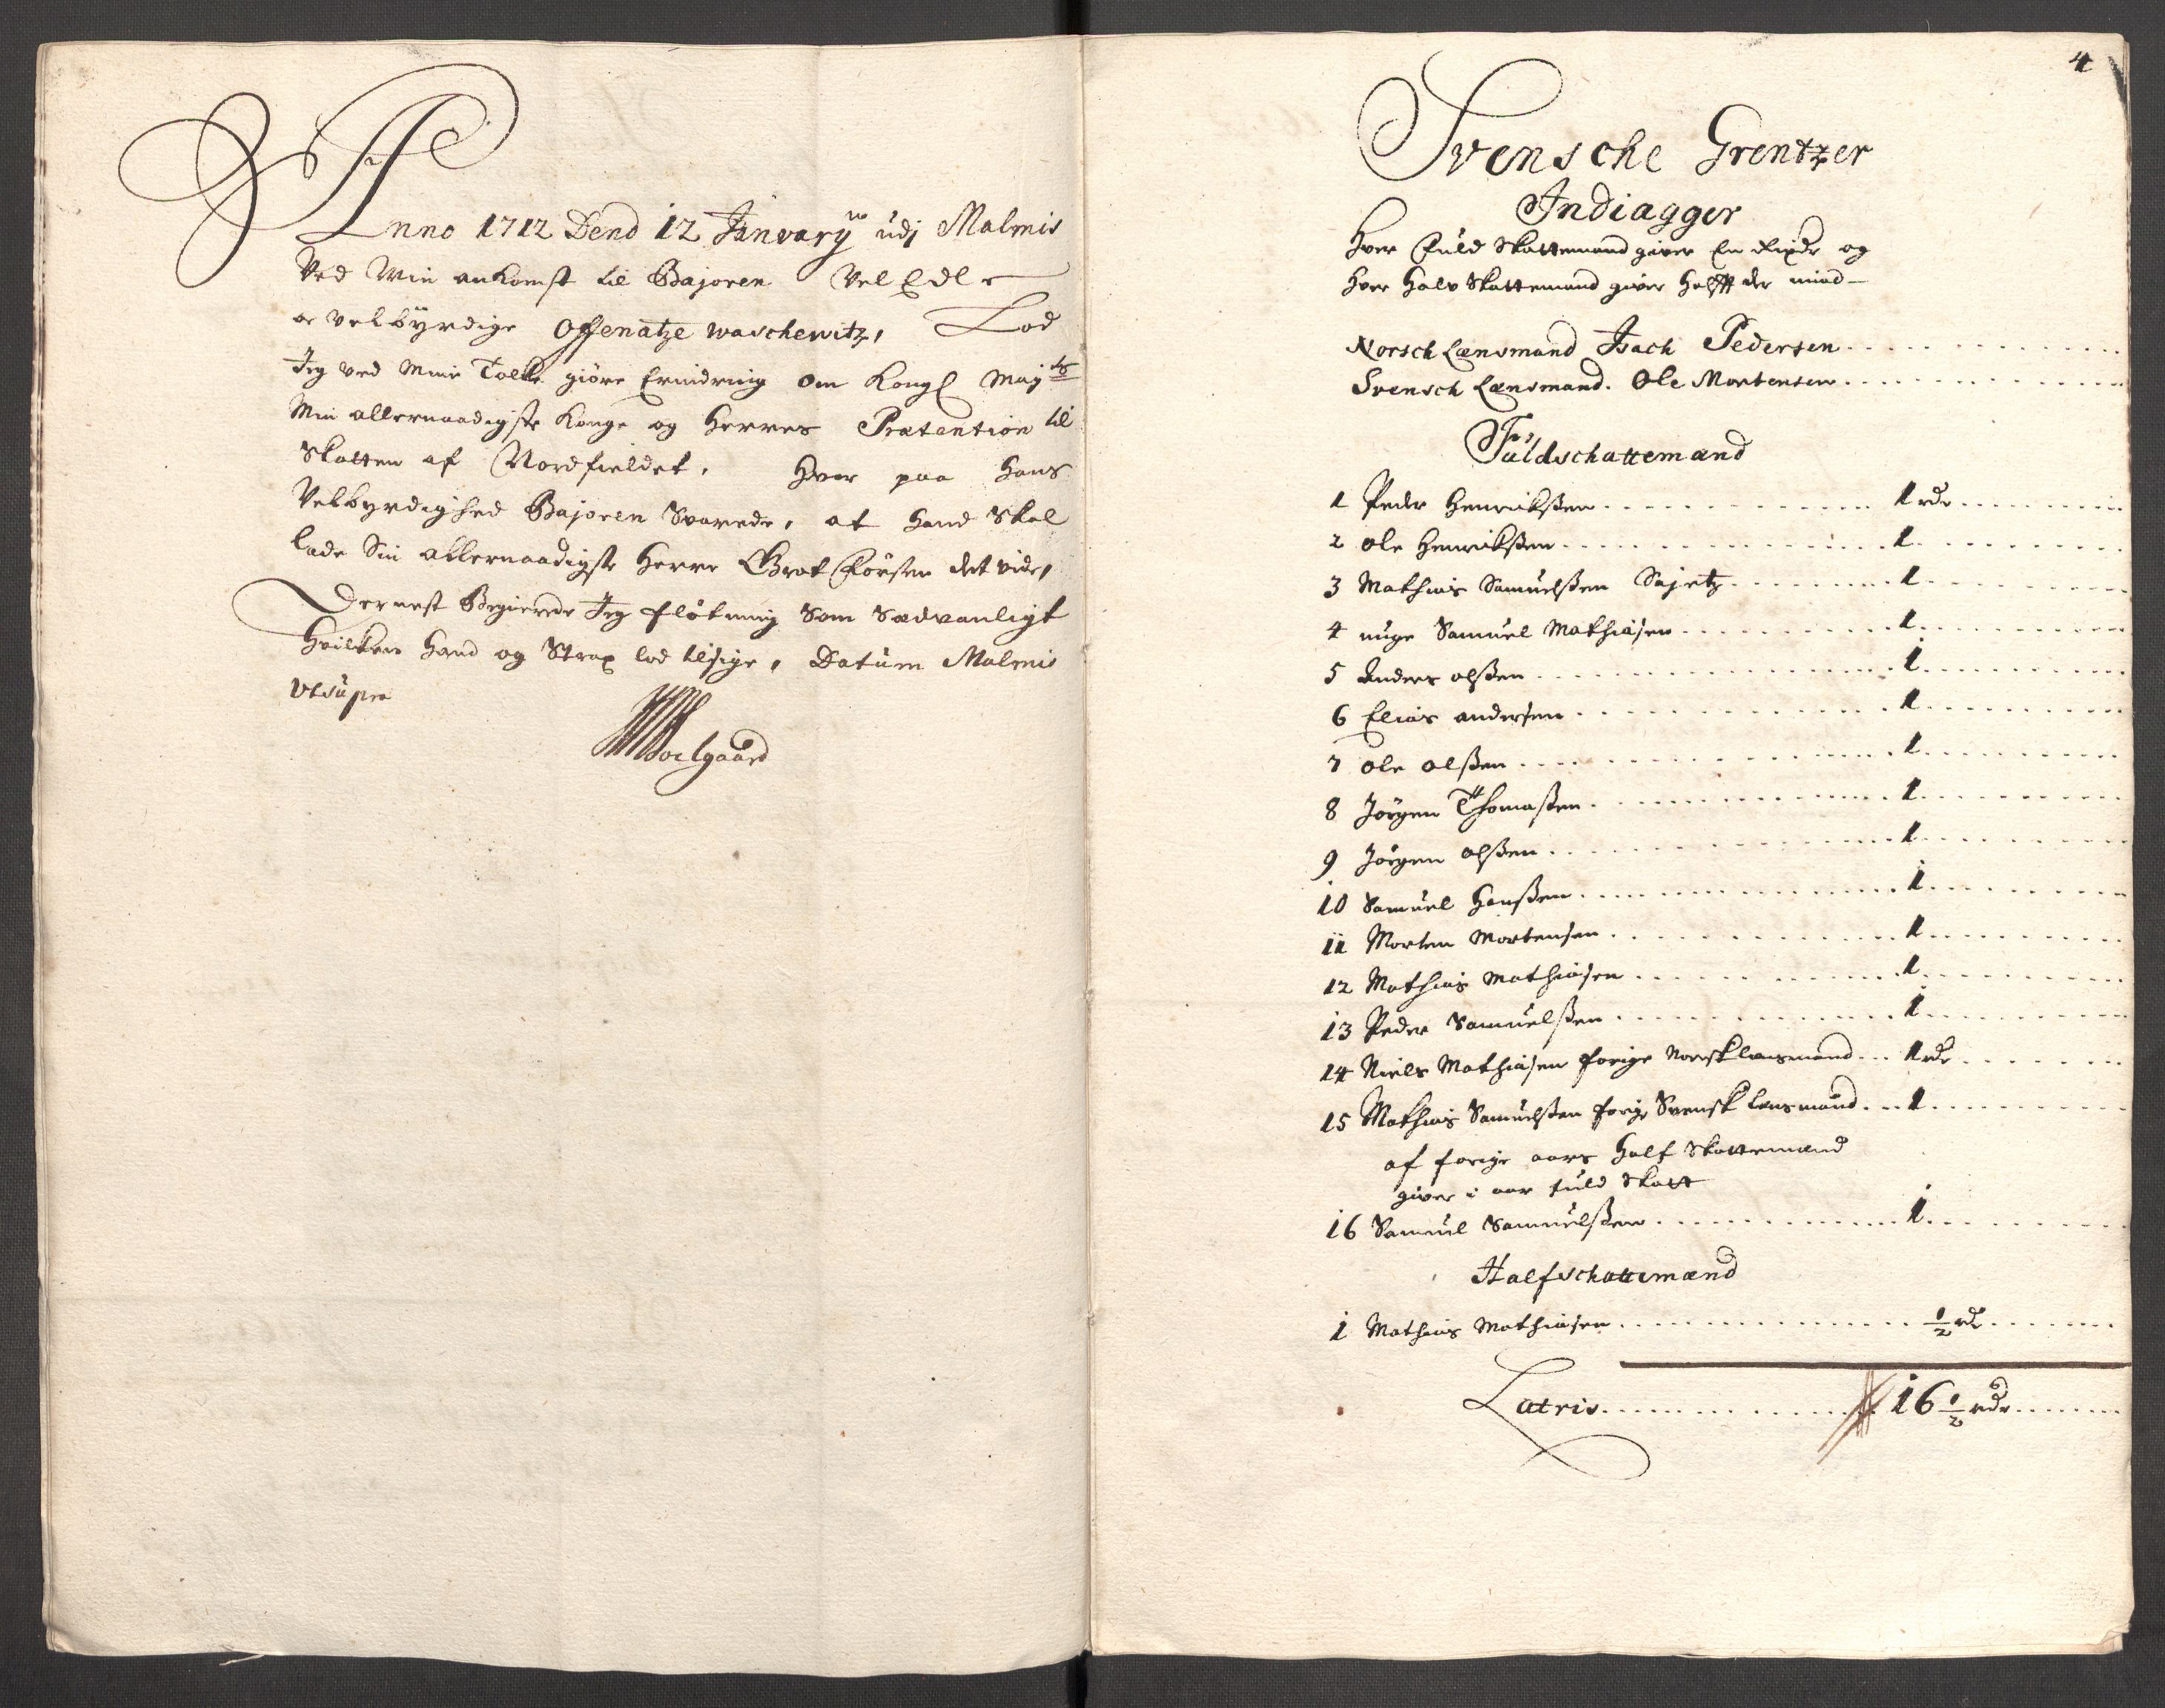 Anno 1712 Dend 12 Januarÿ udj Malmis
Ved Min ankomst til Bajoren Vel Edle
oc velbÿrdige Offenatze waschewitz, Lod
Jeg ved Min Tolk giöre Erindring om Kongl Maÿtz
Min allernaadigste Konge og Herres Prætention til
Skatten af Nordfieldet. Hvor paa Hans
Velbyrdighed Bajoren Svarede, at Hand Skal
lade Sin allernaadigste Herre Grot Försten det vide,
Dernest Begierede Jeg flötning Som Sædvanligt
Hvilken Hand og Strax lod tilsige, Datum Malmis
Utsupra
Soelgaard
4
Svensche Grentzer
Indiagger
Hver Fuld Skattemand giver En Rixdr og
Hver Halv Skattemand giver Helfft der mind
Norsch Lænsmand Isach Pedersen
Svensch Lænsmand. Ole Mortensen
Fuldschattemænd
1 Peder Henrichßen 1 rdr
2 Ole Henrichßen 1
3 Mathias Samuelßen Sajetz 1
4 unge Samuel Mathiasen 1
5 Anders olßen 1
6 Elias andersen 1
7 Ole olßen 1
8 Jörgen Thomaßen 1
9 Jörgen olßen 1
10 Samuel Hanßen 1
11 Morten Mortensen 1
12 Mathias Mathiasen 1
13 Peder Samuelßen 1
14 Niels Mathiasen forige Norsk lensmand 1 rdr
15 Mathias Samuelßen forige Svensk lensmand 1
af forige aars Half Skattemænd
giver i aar fuld Skatt
16 Samuel Samuelßen 1
Halfschattemænd
1 Mathias Mathiasen ½ rdr
Latris 16 ½ rdr